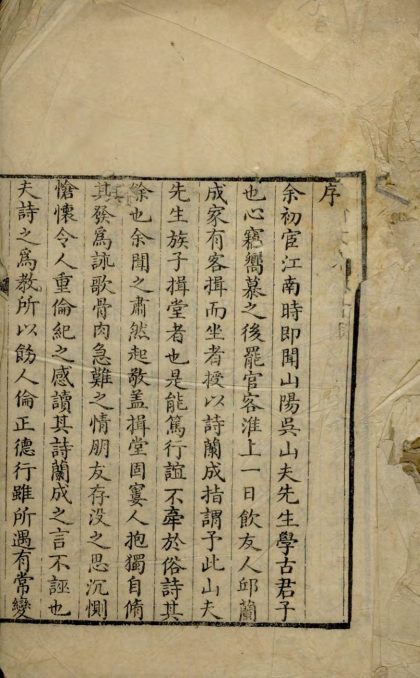 序
余初宦江南時即聞山陽吳山夫先生學古君子
也心竊嚮慕之後罷官客淮上一日飲友人邱蘭
成家有客揖而坐者授以詩蘭成指謂予此山夫
先生族子揖堂者也是能篤行誼不牽於俗詩其
餘也余聞之肅然起敬盖揖堂固寠人抱獨自脩
其發為詠歌骨肉急難之情朋友存没之思沉惻
愴懷令人重倫紀之感讀其詩蘭成之言不誣也
夫詩之為教所以飭人倫正德行雖所遇有常變